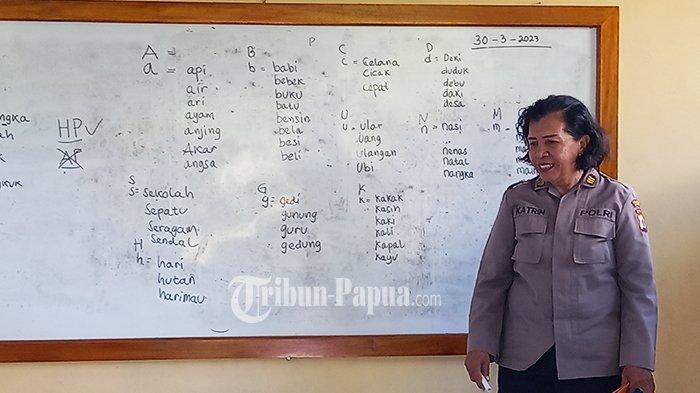 30-3-2023
P
A =
a = api
air
ari
ayam
anjing
Akar
angsa
B
b = babi
bebek
buku
batu
bensin
bela
besi
beli
C
c = Celana
Cicak
cepat
D
d = Deki
duduk
debu
daki
desa
U
u = ular
Uang
ulangan
Ubi
N
n = nasi
nenas
natal
nangka
M
m =
HPV
S
S = Sekolah
Sepatu
Seragam
Sendal
H
h = hari
hutan
harimau
G
g = gedi
gunung
guru
gedung
K
k = kakak
kasih
kaki
kali
kapal
kayu
KATRIN
POLRI
Tribun-Papua.com